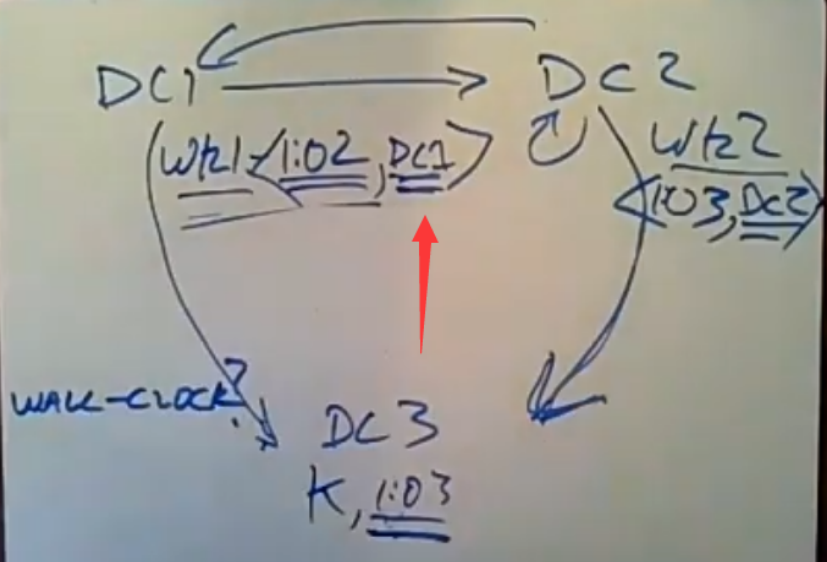 DC1 DC2
Wk1 <1:02, DC1> Wk2
<1:03, DC2>
WALL-CLOCK?
DC3
K, 1:03